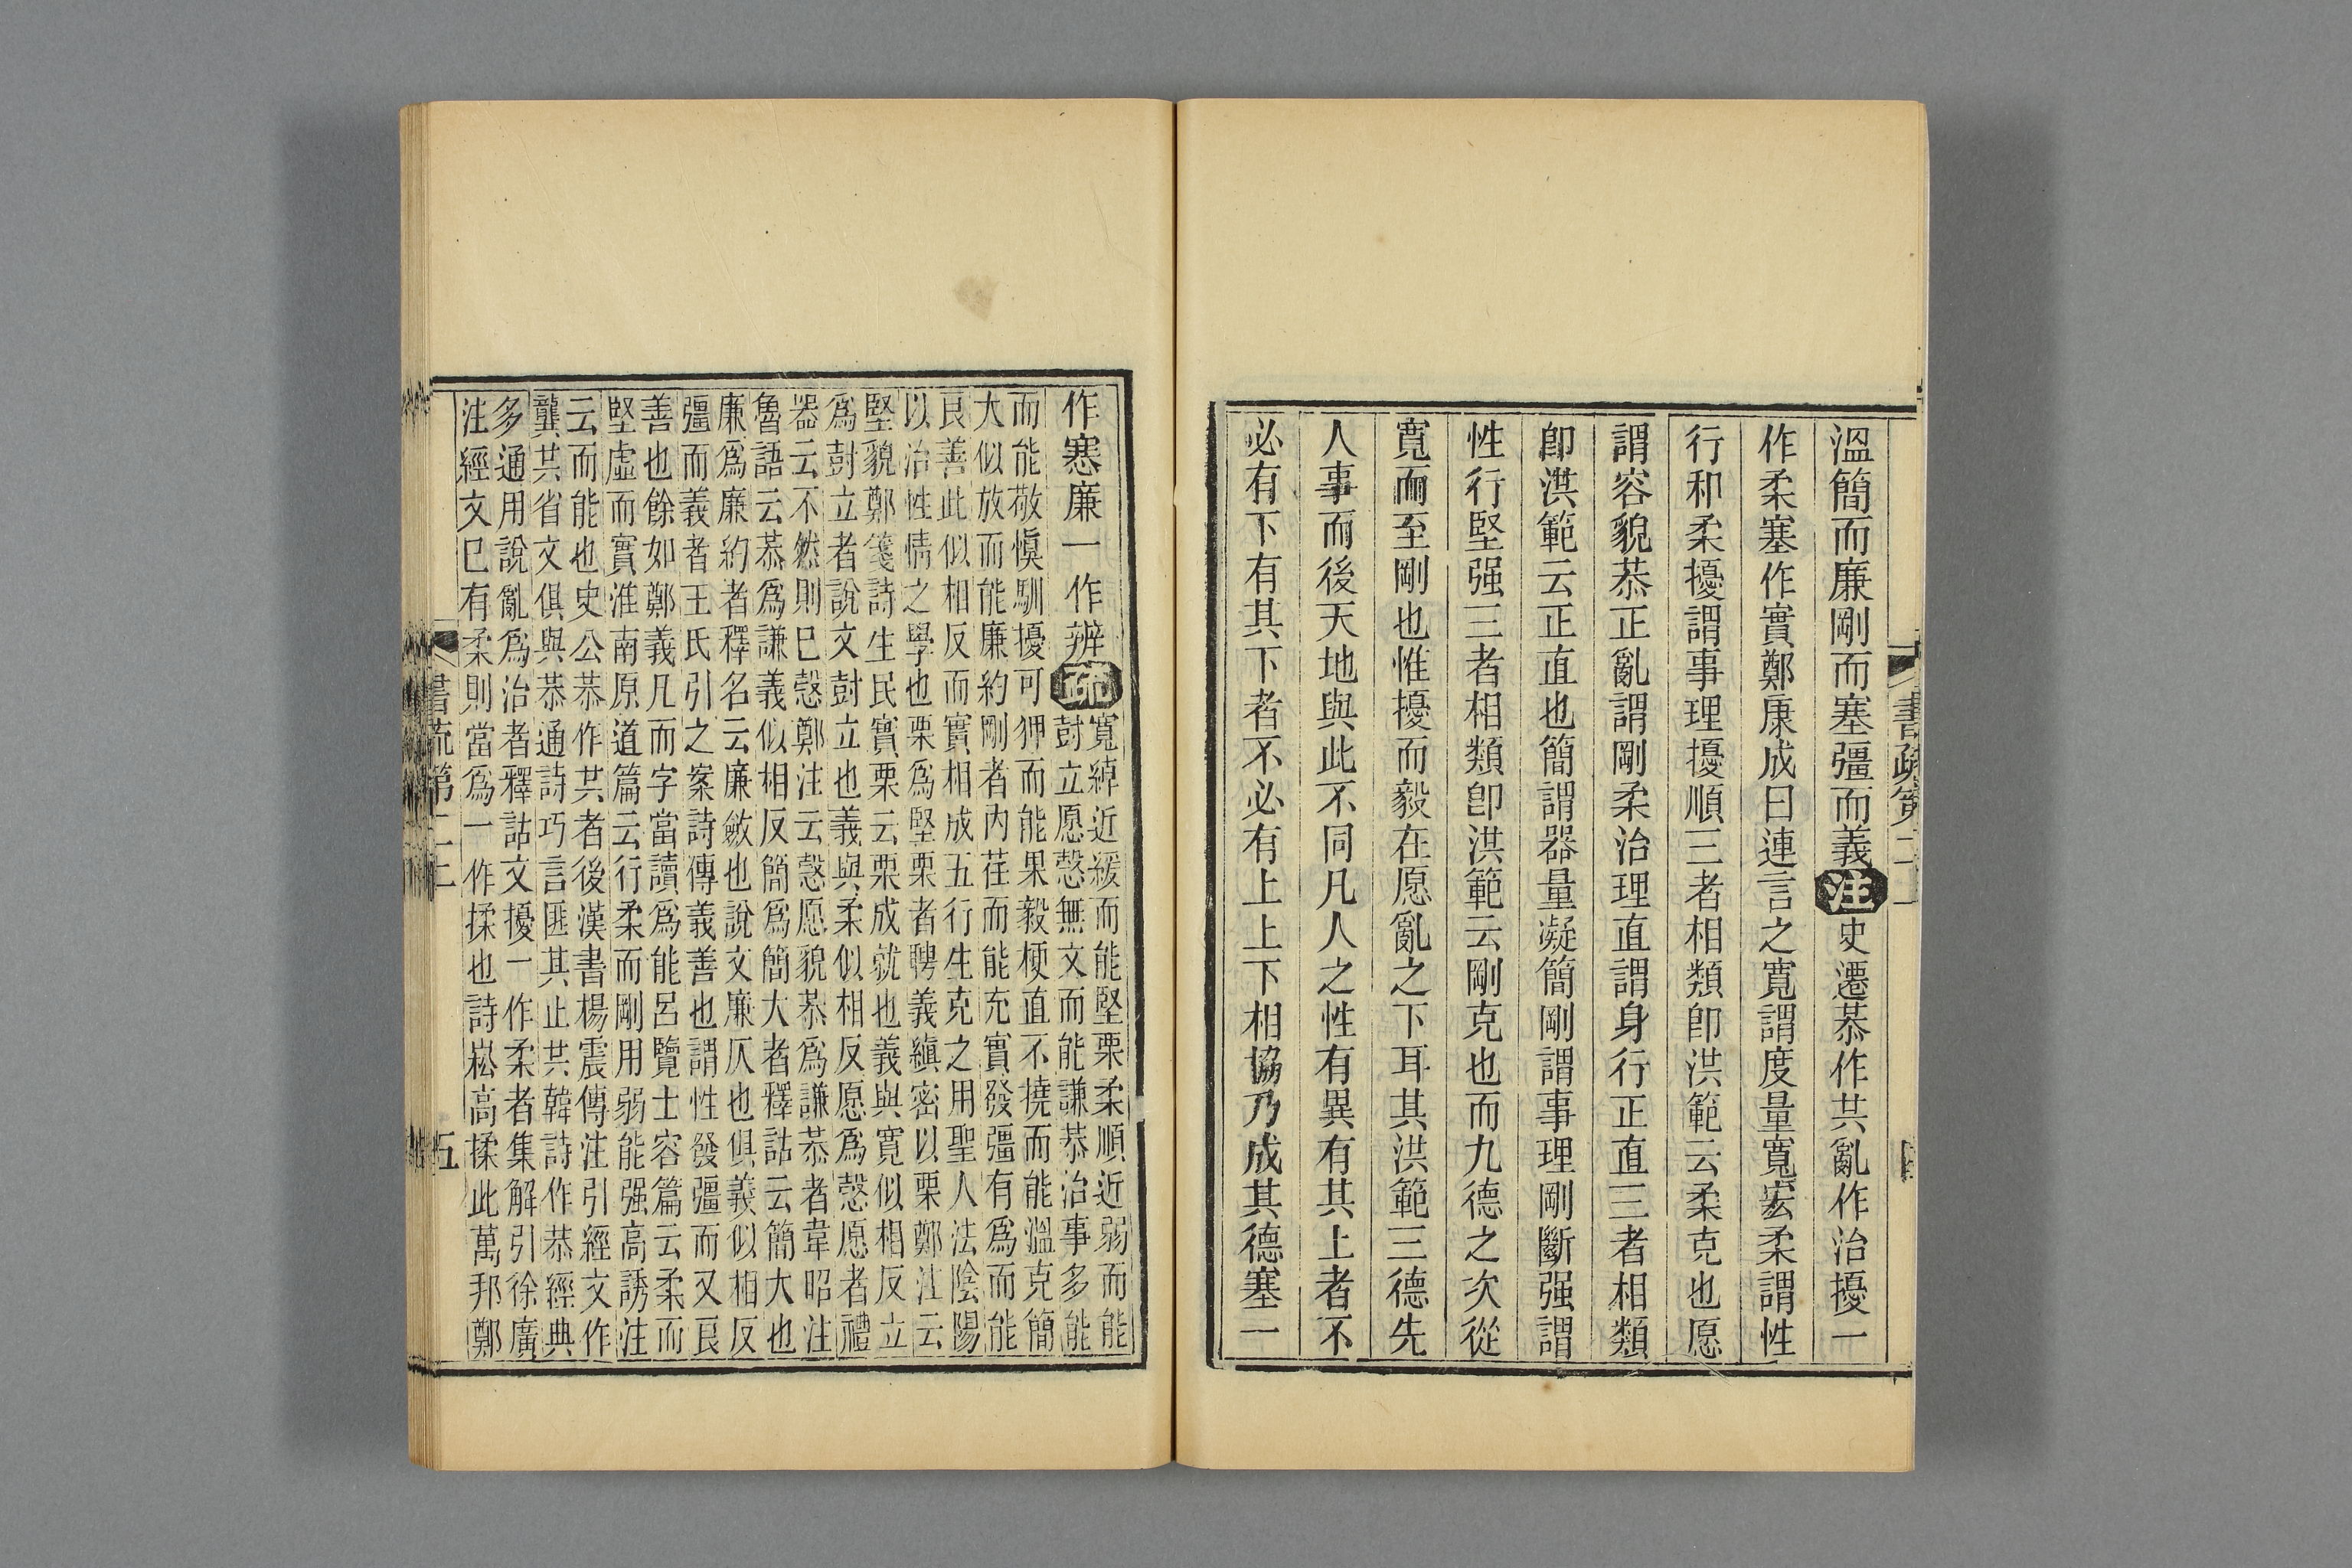 溫簡而廉剛而塞彊而義注史遷恭作共亂作治擾一
作柔塞作實鄭康成曰連言之寬謂度量寬宏柔謂性
行和柔擾謂事理擾順三者相類卽洪範云柔克也愿
謂容貌恭正亂謂剛柔治理直謂身行正直三者相類
卽洪範云正直也簡謂器量凝簡剛謂事理剛斷强謂
性行堅强三者相類卽洪範云剛克也而九德之次從
寬而至剛也惟擾而毅在愿亂之下耳其洪範三德先
人事而後天地與此不同凡人之性有異有其上者不
必有下有其下者不必有上上下相協乃成其德塞一
作寋廉一作辨疏
寬綽近緩而能堅栗柔順近弱而能
尌立愿慤無文而能謙恭治事多能
而能敬愼馴擾可狎而能果毅梗直不撓而能溫克簡
大似放而能廉約剛者內荏而能充實發彊有爲而能
良善此似相反而實相成五行生克之用聖人法陰陽
以治性情之學也栗爲堅栗者聘義縝密以栗鄭注云
堅貌鄭箋詩生民實栗云栗成就也義與寬似相反立
爲尌立者說文尌立也義與柔似相反愿爲慤愿者禮
器云不然則已慤鄭注云慤愿貌恭爲謙恭者韋昭注
魯語云恭爲謙義似相反簡爲簡大者釋詁云簡大也
廉爲廉約者釋名云廉斂也說文廉仄也俱義似相反
彊而義者王氏引之案詩傳義善也謂性發彊而又良
善也餘如鄭義凡而字當讀爲能呂覽士容篇云柔而
堅虛而實淮南原道篇云行柔而剛用弱能强高誘注
云而能也史公恭作共者後漢書楊震傳注引經文作
龔共省文俱與恭通詩巧言匪其止共韓詩作恭經典
多通用說亂爲治者釋詁文擾一作柔者集解引徐廣
注經文已有柔則當爲一作揉也詩崧高揉此萬邦鄭
書疏第二上
五